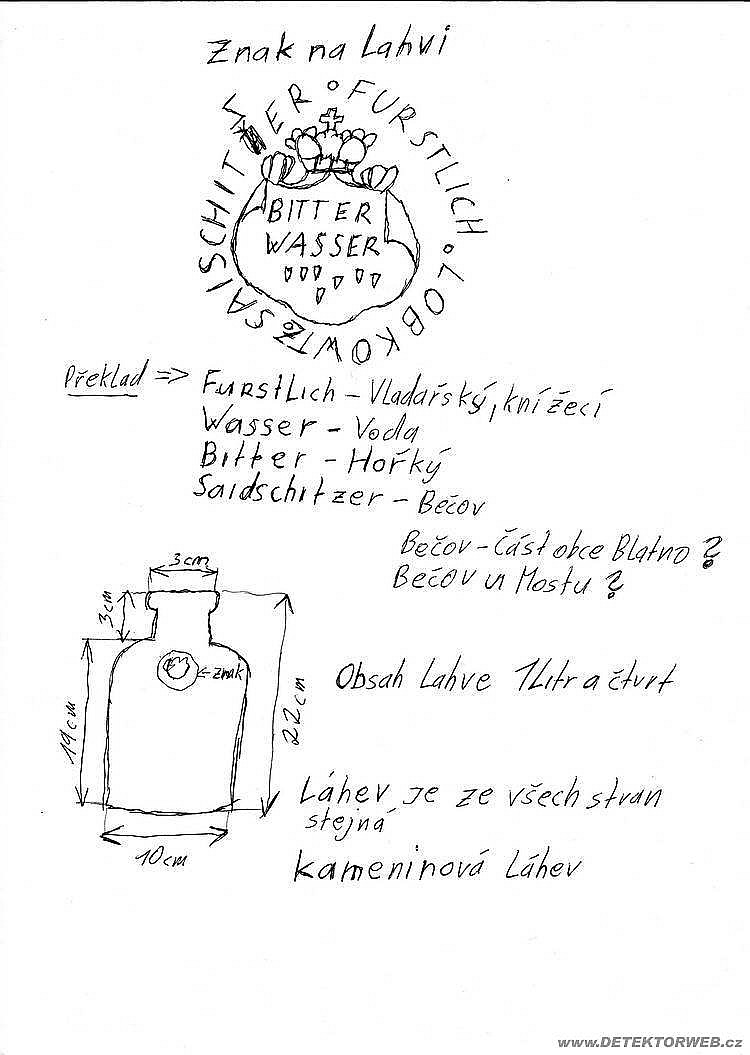 Znak na Lahvi
FURSTLICH ∘ LOBKOWITZ ∘ SAISCHITZER ∘
BITTER
WASSER
Překlad => Furstlich – Vladařský, knížecí
Wasser – Voda
Bitter – Hořký
Saidschitzer – Bečov
Bečov – Část obce Blatno ?
Bečov u Mostu ?
3cm
3cm
← znak
19cm
22cm
10cm
Obsah Lahve 1 Litr a čtvrt
Láhev je ze všech stran
stejná
kameninová Láhev
www.DETEKTORWEB.cz